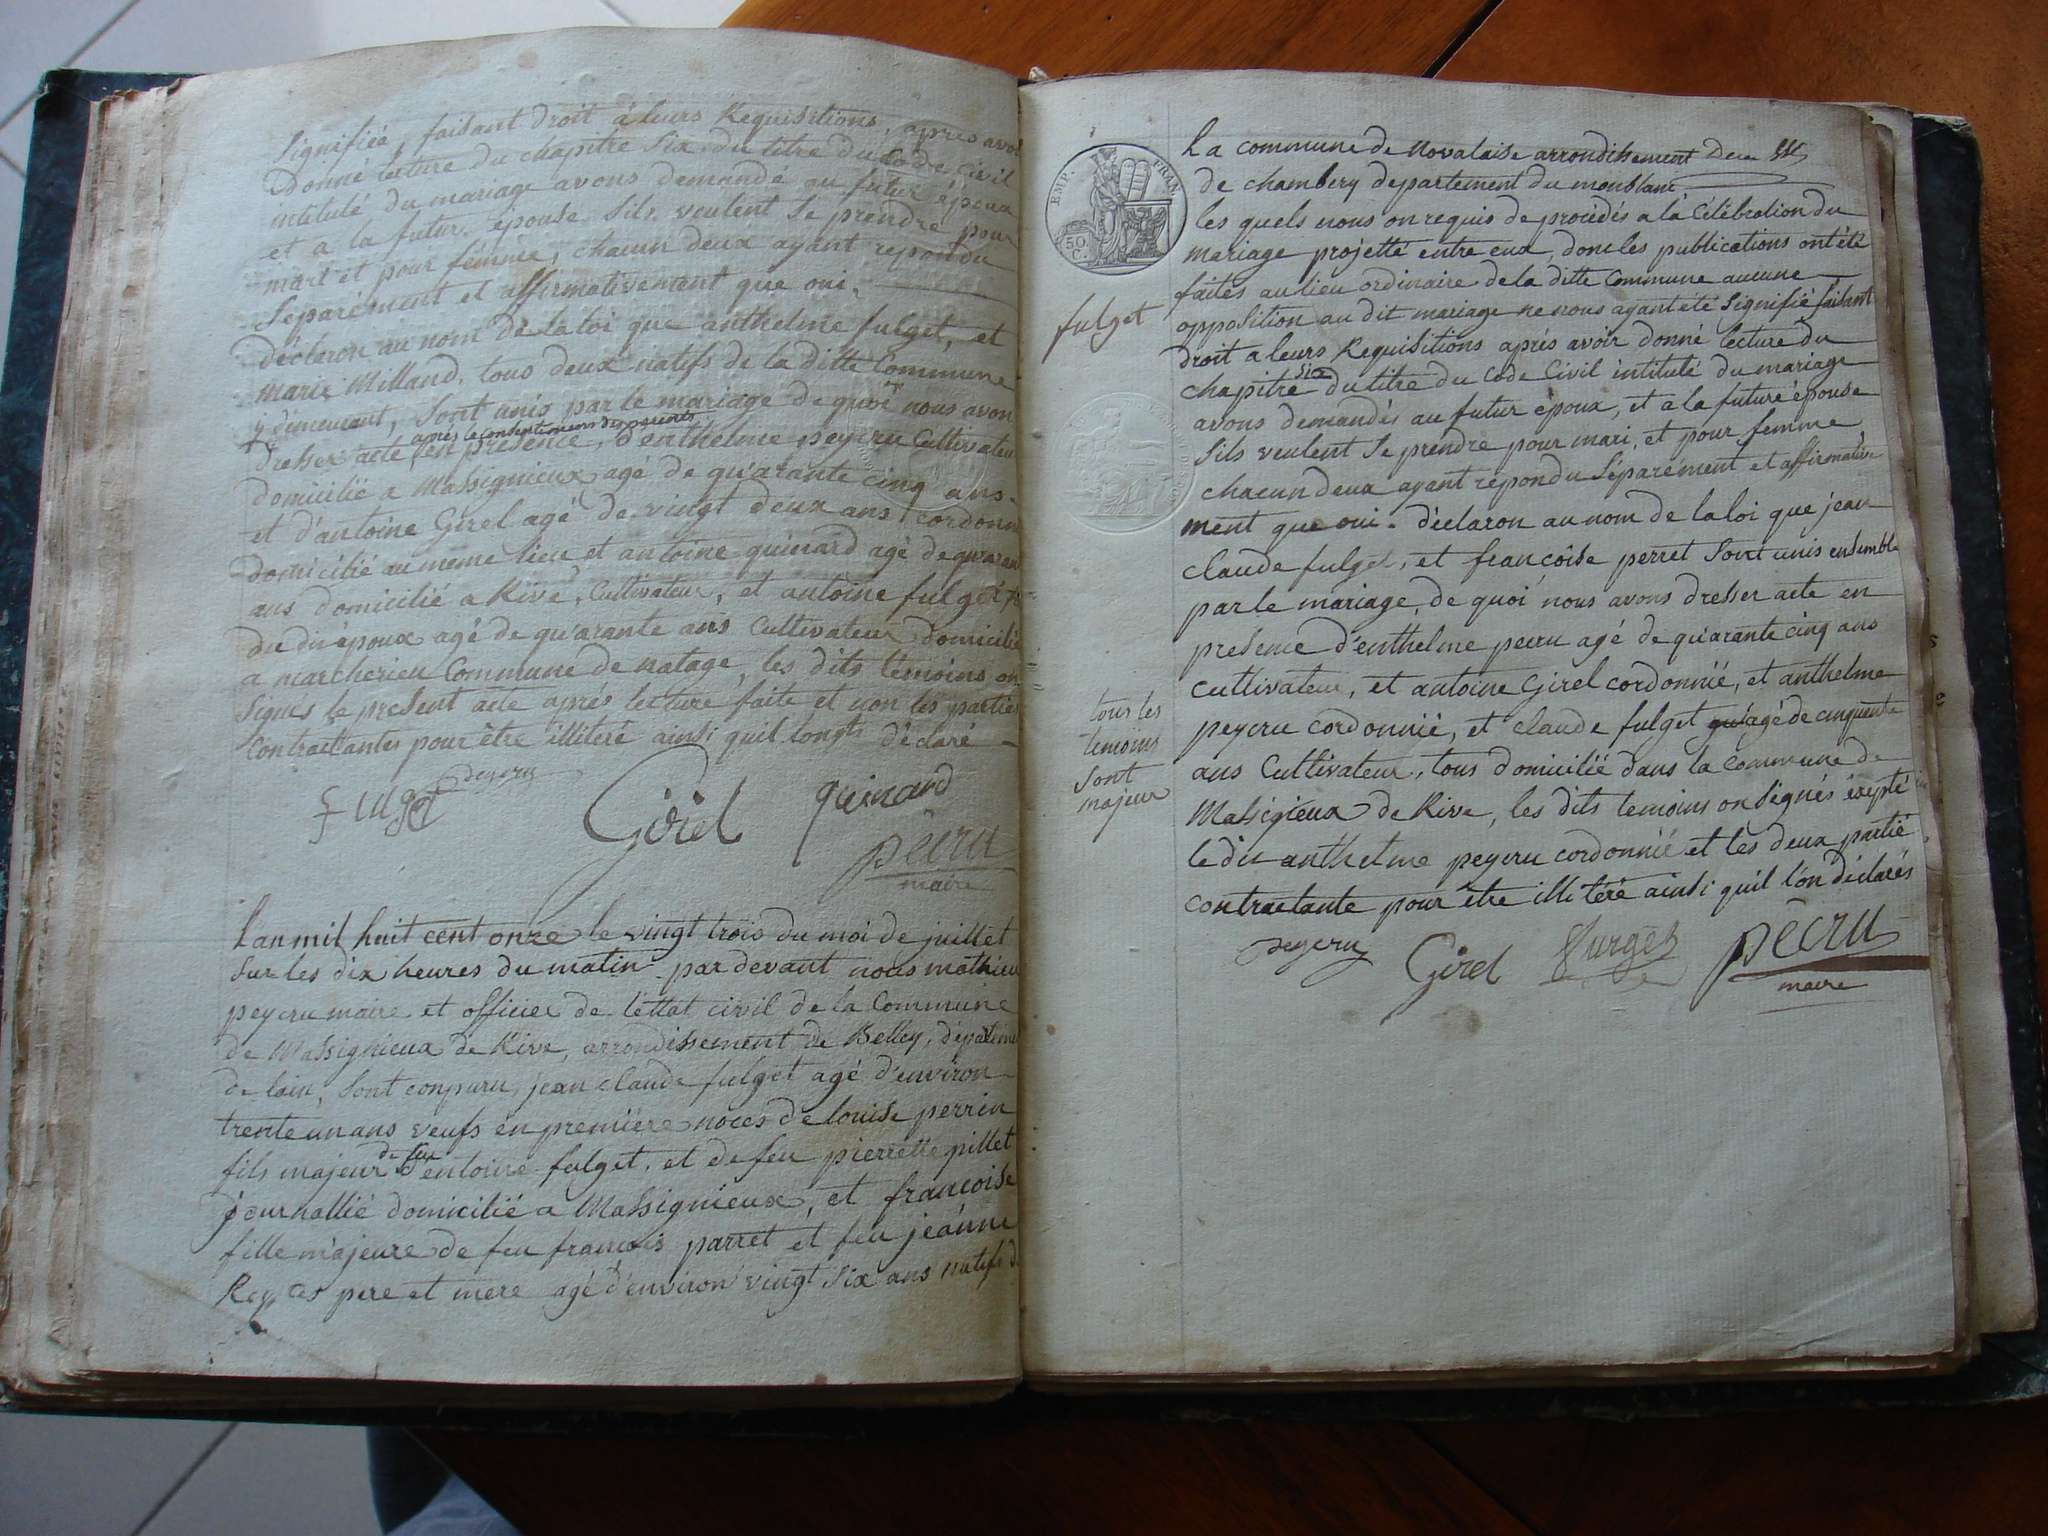 Signifiée, faisant droit à leurs Requisitions, après avoi
donné lecture du chapitre Six du titre du Code Civil
intitulé du mariage avons demandé au futur époux
et a la futur. épouse Sils veulent Se prendre pour
mari et pour fémme, chacun deux ayant repondu
Séparément et affirmativement que oui.
déclaron au nom de la loi que anthelme fulget, et
Marie Milland, tous deux natifs de la ditte Commune
y démeurant, Sont unis par le mariage de quoi nous avon
après le consentement des parents
dresser acte en présence, d'enthelme peyru Cultivateu
domicilié a Massignieux agé de quarante cinq ans.
et d'antoine Girel agé de vingt deux ans, cordonn
domicilié au même lieu et antoine quinard agé de quaran
ans domicilié a Rive, Cultivateur, et antoine fulget
du dit époux agé de quarante ans Cultivateur domicilié
a marcherieu Commune de natage, les dits témoins on
Signés le présent acte après lecture faite et non les parties
Contractantes pour être illitéré ainsi quil longt déclaré
Fulget peyeru Girel quinard
pècru
maire
Lan mil huit cent onze le vingt trois du moi de juillet
Sur les dix heures du matin par devant nous mathieu
peyeru maire et officier de l'éttat civil de la Commune
de Massignieux de Rive, arrondissement de Belley, départeme
de lain, Sont conparu, jean claude fulget agé d'environ
trente un ans veufs en première noces de louise perrin
de feu
fils majeur d'entoine fulget, et de feu pierrette pillet
journallié domicilié a Massignieux, et françoise
fille majeure de feu francois parret et feu jeanne
Rey, ces pere et mere agé d'environ vingt Six ans natifs d
EMP. FRAN.
50 C.
La commune de Novalaise arrondissement
de chambery departement du monblanc.
les quels nous on requis de procédés a la Célébration du
mariage projetté entre eux, donc les publications ont été
faites au lieu ordinaire de la ditte Commune aucune
fulget
opposition au dit mariage ne nous ayant été Signifié faisant
droit a leurs Requisitions après avoir donné lecture du
chapitre Six du titre du Code Civil intitulé du mariage
avons demandés au futur époux, et a la future épouse
Sils veulent Se prendre pour mari, et pour femme,
chacun deux ayant répondu Séparément et affirmative
ment que oui. déclaron au nom de la loi que jean
claude fulget, et françoise perret Sont unis ensemble
par le mariage, de quoi nous avons dresser acte en
présence d'enthelme peeru agé de quarante cinq ans
cultivateur, et antoine Girel cordonnié, et anthelme
peyeru cordonnié, et claude fulget qu'agé de cinquente
ans Cultivateur, tous domicilié dans la commune de
tous les
temoins
Sont
majeur
Massigieux de Rive, les dits temoins on Signés éxepté
le dit anthelme peyeru cordonnié et les deux partié
contractante pour être illitéré ainsi quil l'on déclarés
peyeru Girel Furget pècru
maire